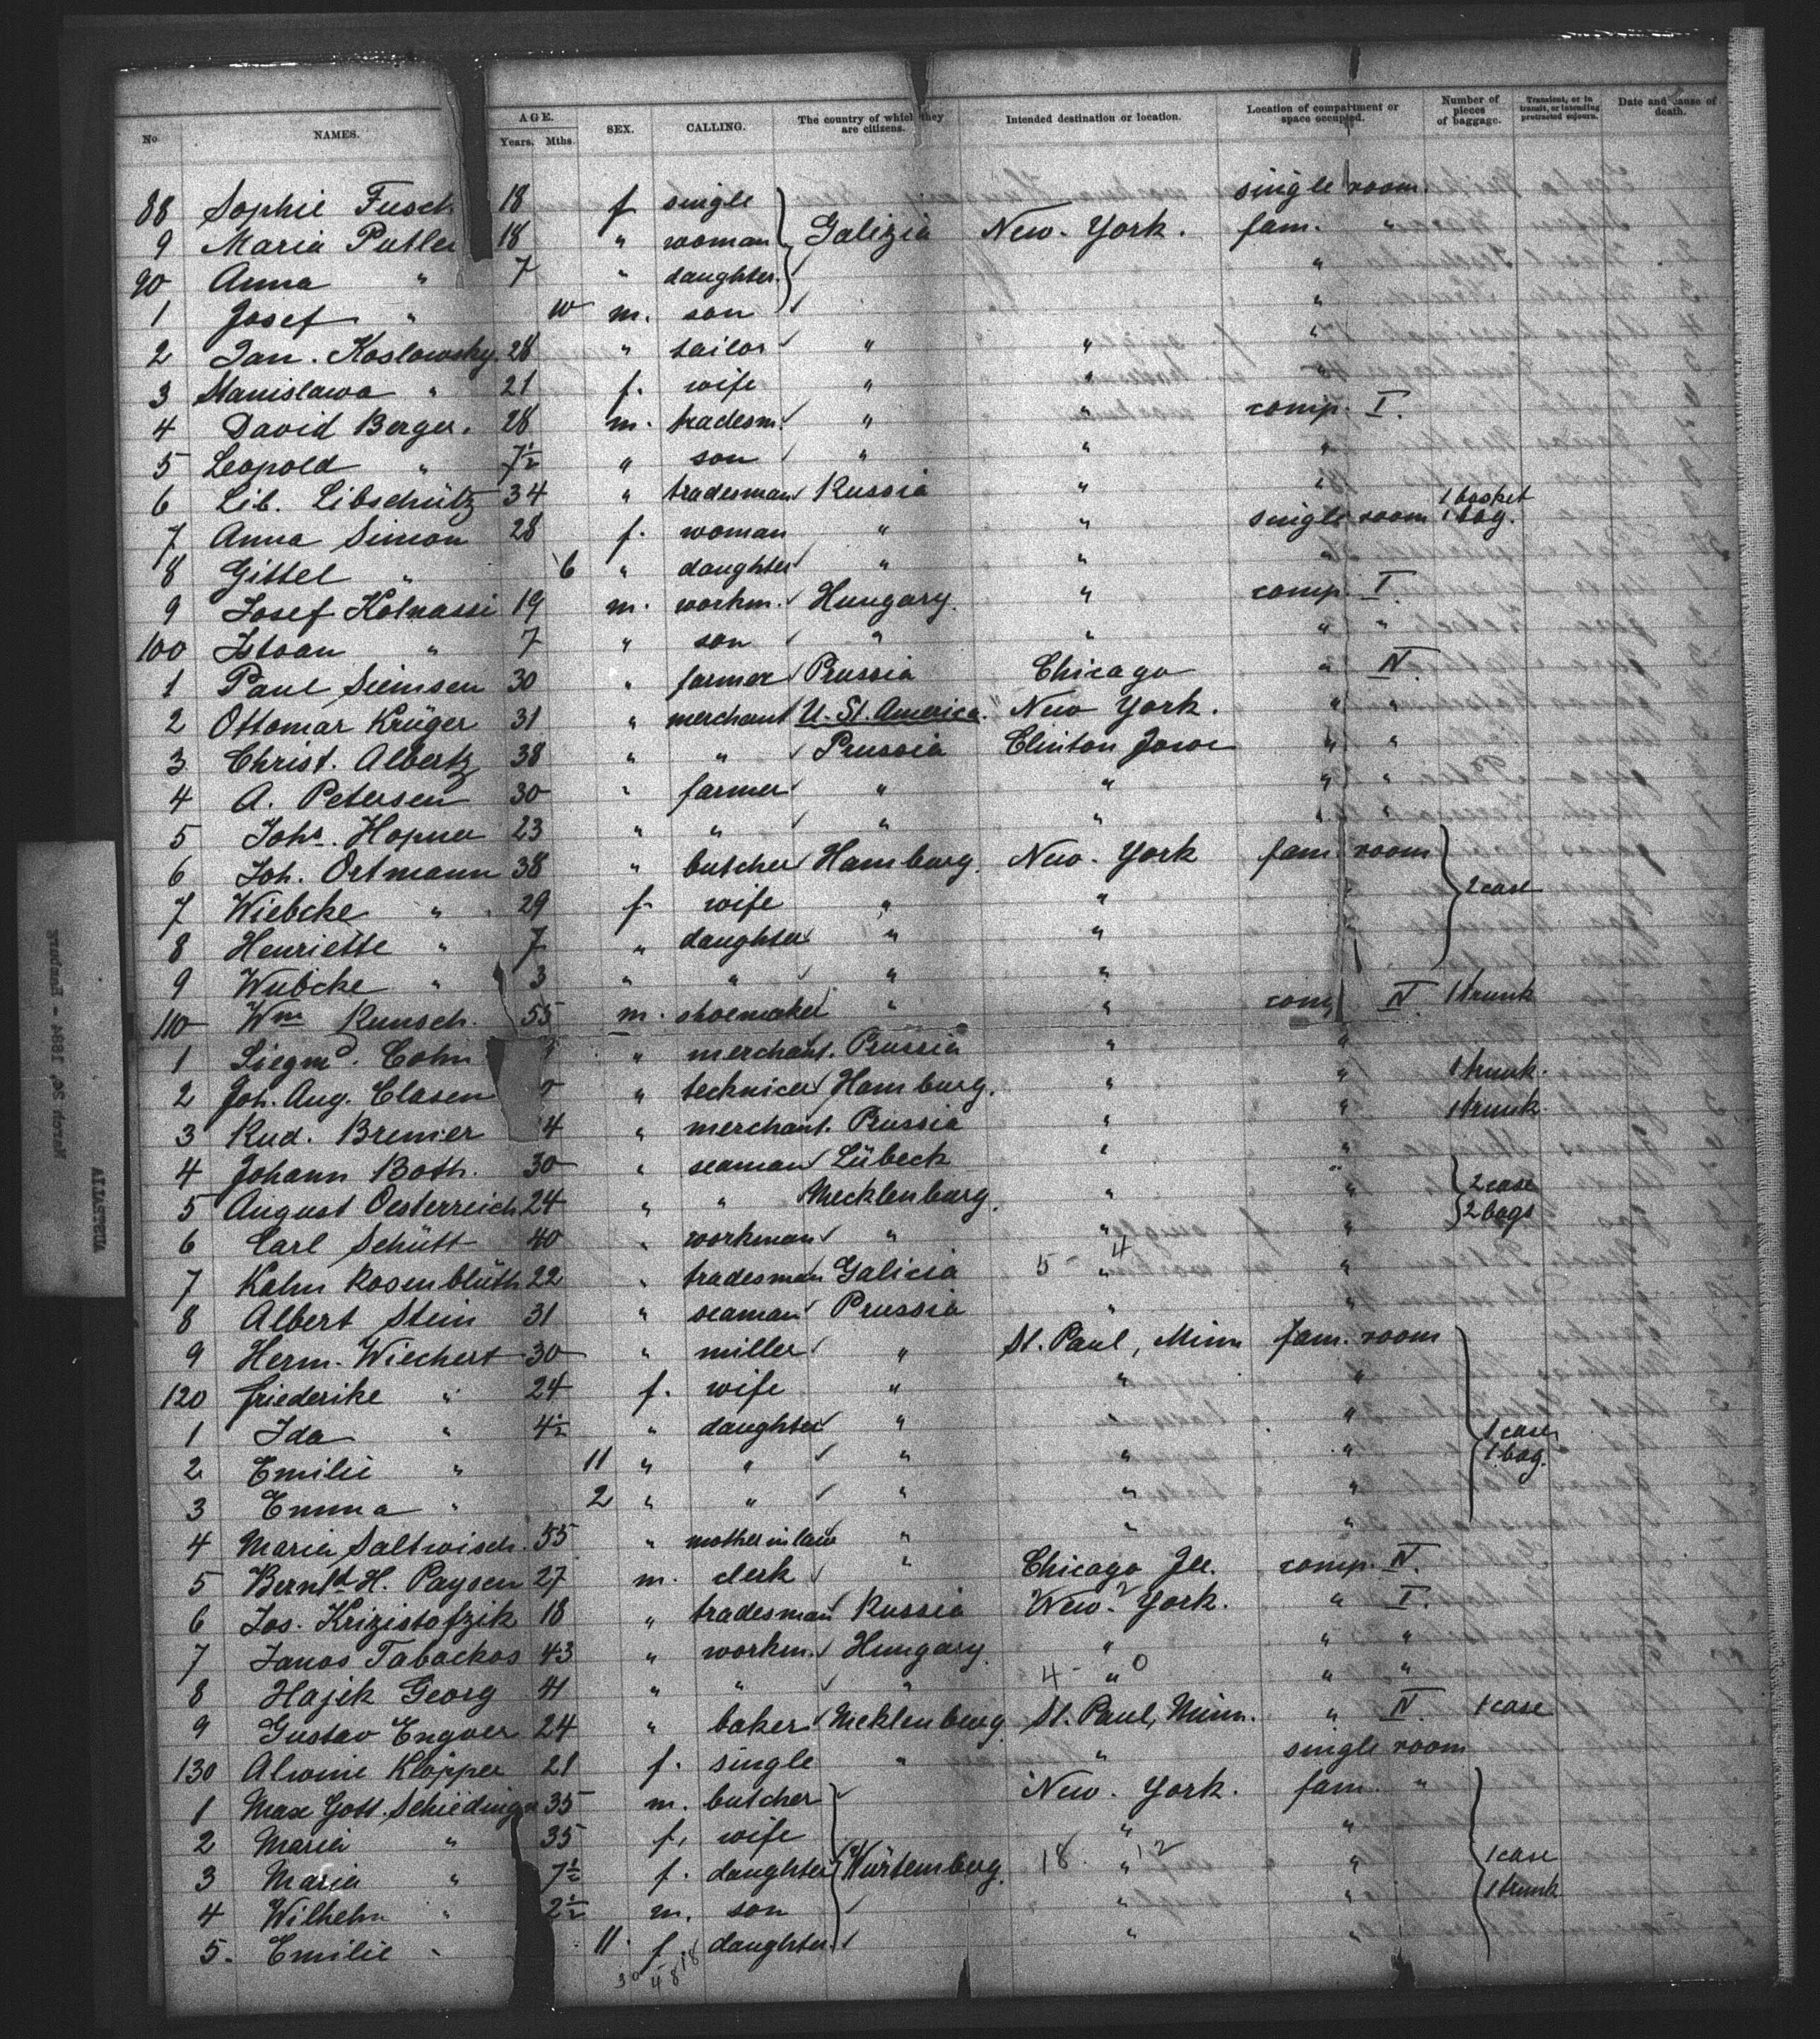 No NAMES. AGE. Years. Mths. SEX. CALLING. The country of which they are citizens. Intended destination or location. Location of compartment or space occupied. Number of pieces of baggage. Transient, or in transit, or intending protracted sojourn. Date and cause of death.
88 Sophie Fusch 18 f single single room.
9 Maria Putler 18 " woman Galizia New-York. fam. "
90 Anna " 7 " daughter. "
1 Josef " 10 m. son "
2 Jan. Koslowsky. 28 " tailor " " "
3 Stanislawa " 21 f. wife " " "
4 David Berger. 28 m. tradesm. " " comp. I.
5 Leopold " 7½ " son " " "
6 Lib. Libschütz 34 " tradesman Russia " " 1 basket
7 Anna Simon 28 f. woman " " single room 1 bag.
8 Gittel " 6 " daughter " " "
9 Josef Kolnassi 19 m. workm. Hungary. " comp. I.
100 Istvan " 7 " son " " " "
1 Paul Siemsen 30 " farmer Prussia Chicago " IV.
2 Ottomar Krüger 31 " merchant U. St. America. New York. " "
3 Christ. Albertz 38 " " Prussia Clinton Jowa " "
4 A. Petersen 30 " farmer " " " "
5 Johs. Hopner 23 " " " " " "
6 Joh. Ortmann 38 " butcher Hamburg. New-York fam. room
7 Wiebcke " 29 f. wife " " " 2 case
8 Henriette " 7 " daughter " " "
9 Wubcke " 3 " " " "
110 Wm Runsch. 55 m. shoemaker " " comp IV. 1 trunk
1 Siegmd. Cohn " merchant. Prussia " "
2 Joh. Aug. Clasen " technicer Hamburg. " " 1 trunk.
3 Rud. Bremer 4 " merchant. Prussia " " 1 trunk.
4 Johann Both. 30 " seaman Lübeck " "
5 August Oesterreich 24 " " Mecklenburg. " " 2 case
6 Carl Schütt 40 " workman " " " 2 bags
7 Kalm Rosenblüth 22 " tradesman Galicia 5 - " 4 "
8 Albert Stein 31 " seaman Prussia " "
9 Herm. Wiechert 30 " miller " St. Paul, Minn fam. room
120 Friederike " 24 f. wife " " "
1 Ida " 4½ " daughter " " " 1 case
2 Emilie " 11 " " " " " 1 bag.
3 Emma " 2 " " " " "
4 Maria Saltwisch. 55 " mother in law " " "
5 Bernhd H. Paysen 27 m. clerk " Chicago Ill. comp. IV.
6 Jos. Krizistofzik 18 " tradesman Russia New-York. " I.
7 Janos Tabackos 43 " workm. Hungary. " " "
8 Hajek Georg 41 " " " 4 - " 0 " "
9 Gustav Engver 24 " baker Mecklenburg St. Paul, Minn. " IV. 1 case
130 Alwine Klöpper 21 f. single " " single room
1 Max Gott. Schiedinger 35 m. butcher New-York. fam. "
2 Maria " 35 f. wife " "
3 Maria " 7½ f. daughter Würtemberg. 18 - " 12 " 1 case
4 Wilhelm " 2½ m. son " " 1 trunk
5. Emilie " 11. f. daughter. " "